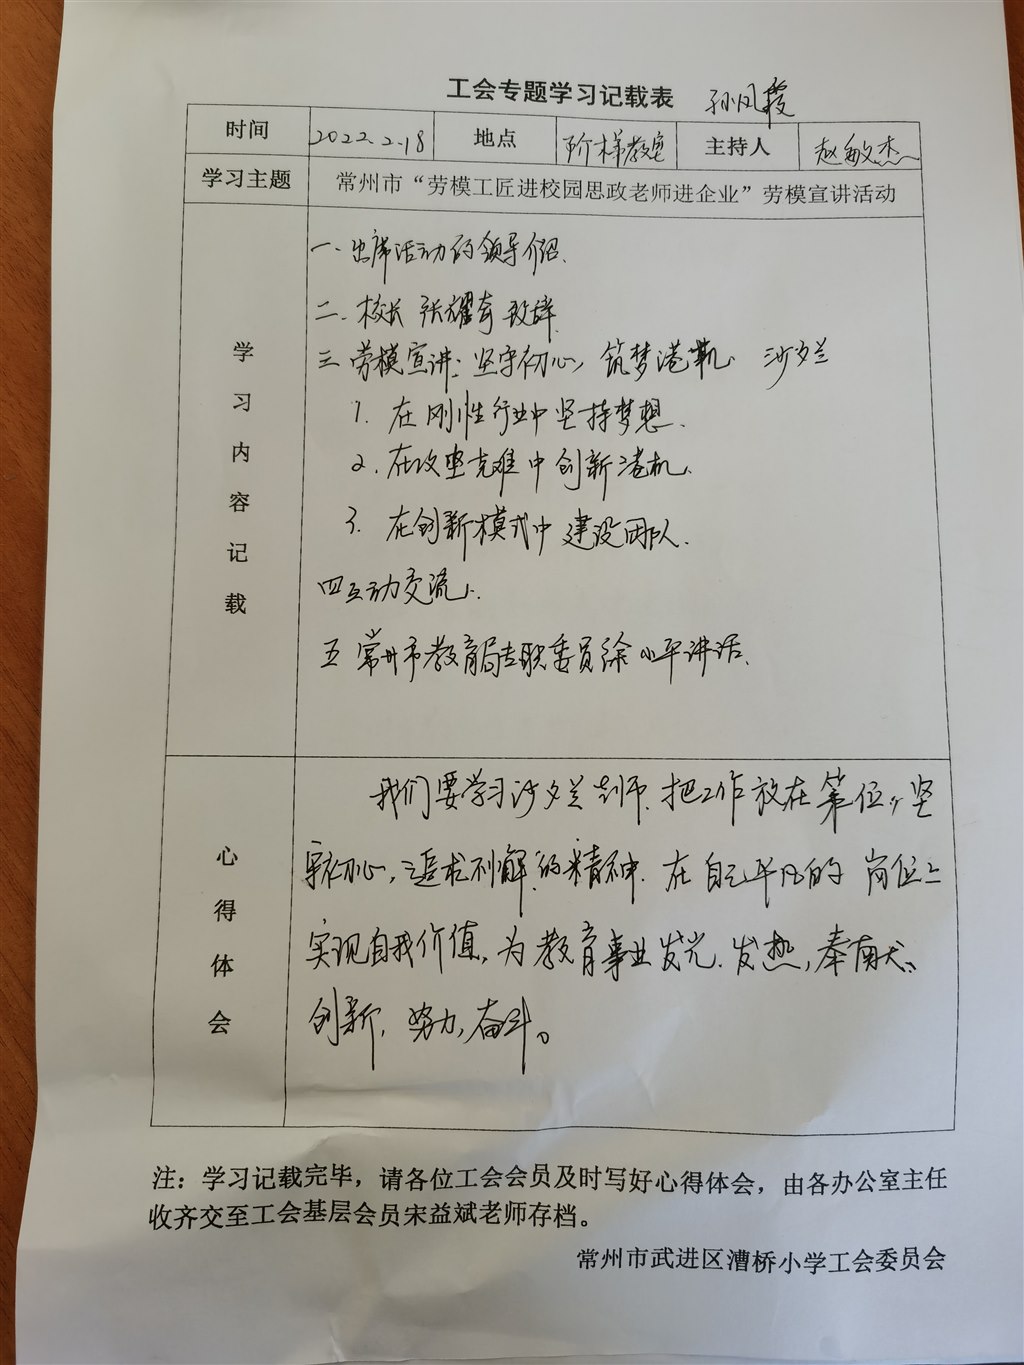 工会专题学习记载表 孙凤霞
时间 2022.2.18 地点 阶梯教室 主持人 赵敏杰
学习主题 常州市“劳模工匠进校园思政老师进企业”劳模宣讲活动
学习内容记载
一.出席活动的领导介绍.
二.校长 张耀奇 致辞
三 劳模宣讲:坚守初心,筑梦港机 沙夕兰
1.在刚性行业中坚持梦想.
2.在攻坚克难中创新港机.
3.在创新模式中建设团队.
四互动交流.
五 常州市教育局专职委员徐小平讲话.
心得体会
我们要学习沙夕兰 把工作放在第一位,坚
守初心,追求不懈的精神.在自己平凡的 岗位上
实现自我价值,为教育事业发光.发热,奉献、
创新,努力,奋斗。
注:学习记载完毕,请各位工会会员及时写好心得体会,由各办公室主任
收齐交至工会基层会员宋益斌老师存档。
常州市武进区漕桥小学工会委员会